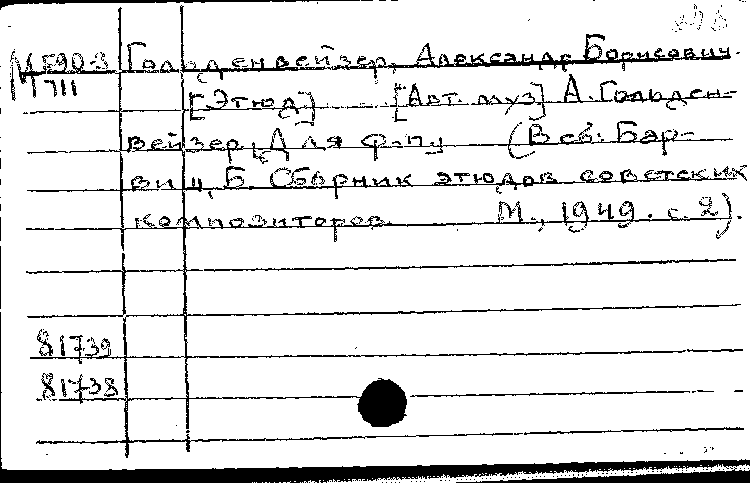 М590-3 Гольденвейзер, Александр Борисович.
М711
[Этюд] [Авт. муз] А. Гольден-
вейзер, Для ф-п., (В сб.: Бар-
вин, Б. Сборник этюдов советских
композиторов М., 1949. с. 2).
81739
81738